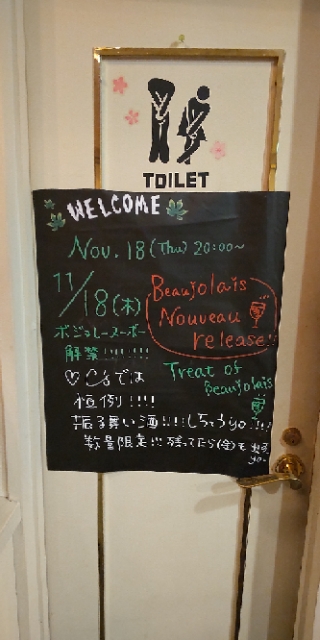 TOILET
WELCOME
Nov. 18 (Thu) 20:00~
11/18 (木)
Beaujolais
Nouveau
release!!
ボジョレーヌーボー
解禁!!!!!!!
Treat of
Beaujolais
♡ では
恒例!!!!
振る舞い酒!!!!しちゃうyo!!!
数量限定!!!残ってたら(金)も
yo~